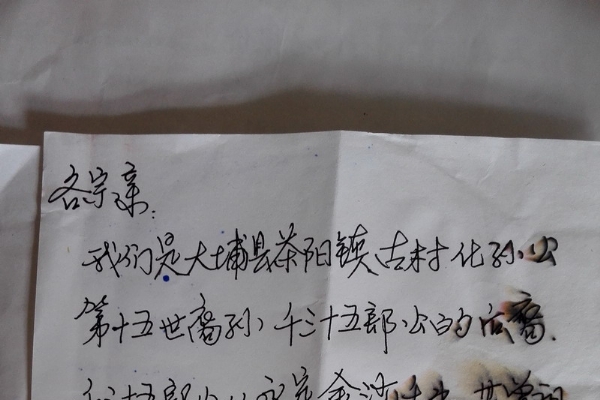 各宗亲:
我们是大埔县茶阳镇古村化孙公
第十五世裔孙千三十五郎公的后裔.